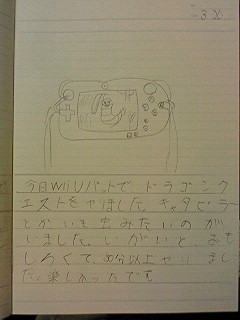 今日WiiUパットで、ドラゴンク
エストをやりました。キャタピラー
とかいも虫みたいのが
いました。いがいと、おも
しろくて、30分以上やりまし
た。楽しかったです